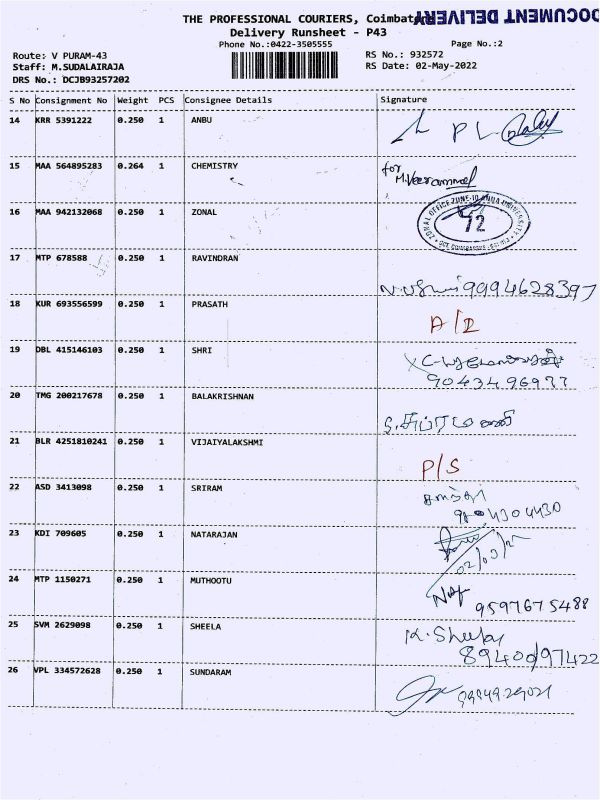 THE PROFESSIONAL COURIERS, Coimbatore
DOCUMENT DELIVERED
Delivery Runsheet - P43
Phone No.:0422-3505555
Page No.:2
Route: V PURAM-43
RS No.: 932572
Staff: M.SUDALAIRAJA
RS Date: 02-May-2022
DRS No.: DCJB93257202
S No Consignment No Weight PCS Consignee Details Signature
14 KRR 5391222 0.250 1 ANBU
15 MAA 564895283 0.264 1 CHEMISTRY for
M.Veerammal
16 MAA 942132068 0.250 1 ZONAL
ZONAL OFFICE ZONE-10 ANNA UNIVERSITY
12
17 MTP 678588 0.250 1 RAVINDRAN
9994628397
18 KUR 693556599 0.250 1 PRASATH
A/D
19 DBL 415146103 0.250 1 SHRI
9043496977
20 TMG 200217678 0.250 1 BALAKRISHNAN
21 BLR 4251810241 0.250 1 VIJAIYALAKSHMI
P/S
22 ASD 3413098 0.250 1 SRIRAM
23 KDI 709605 0.250 1 NATARAJAN
24 MTP 1150271 0.250 1 MUTHOOTU
9597675488
25 SVM 2629098 0.250 1 SHEELA K. Sheela
26 VPL 334572628 0.250 1 SUNDARAM